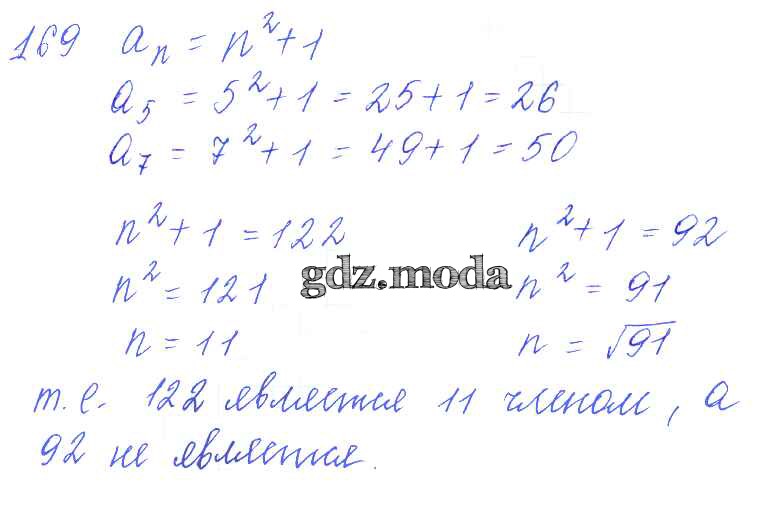 169 aₙ = n² + 1
a₅ = 5² + 1 = 25 + 1 = 26
a₇ = 7² + 1 = 49 + 1 = 50
n² + 1 = 122 n² + 1 = 92
n² = 121 n² = 91
gdz.moda
n = 11 n = √91
т.е. 122 является 11 членом, а
92 не является.